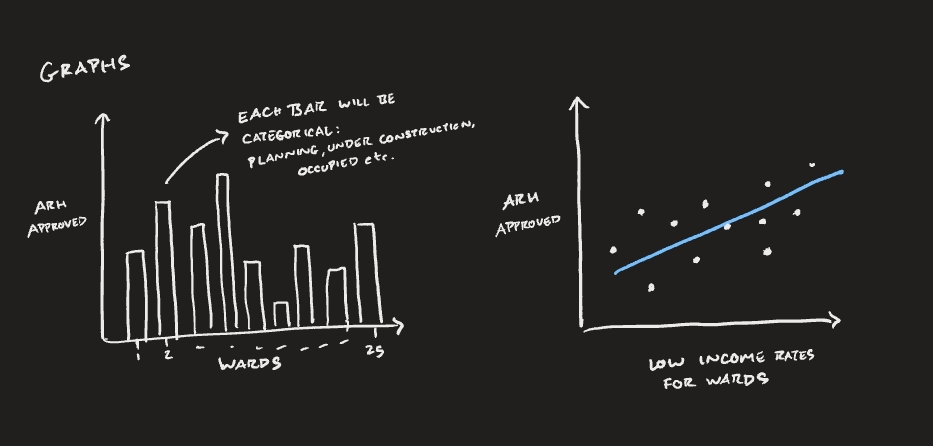 GRAPHS
EACH BAR WILL BE
CATEGORICAL:
PLANNING, UNDER CONSTRUCTION,
OCCUPIED etc.
ARH
APPROVED
1 2 25
WARDS
ARH
APPROVED
LOW INCOME RATES
FOR WARDS